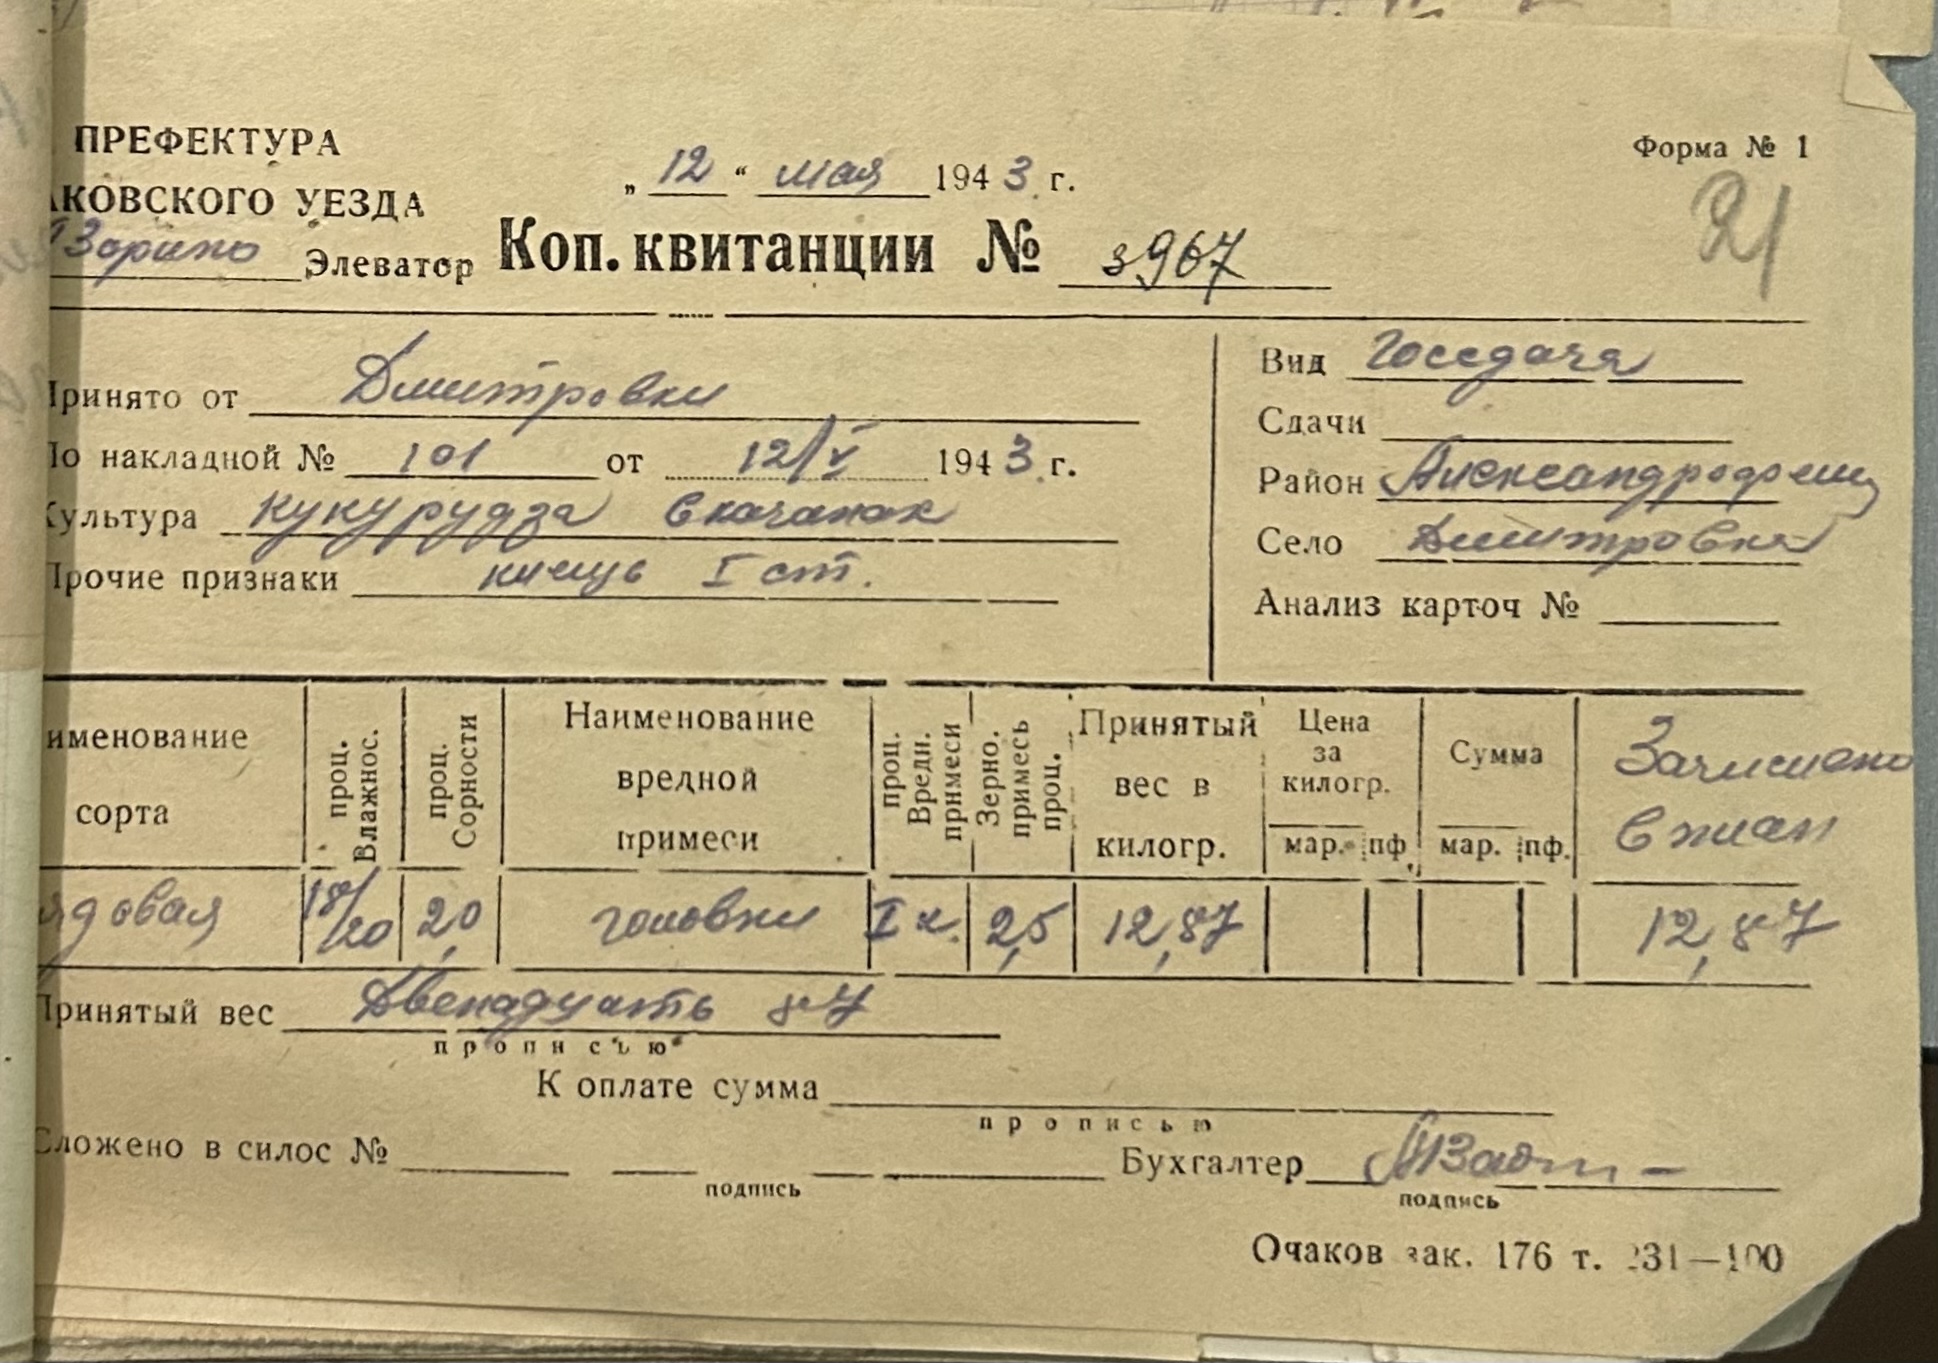 ПРЕФЕКТУРА
АКОВСКОГО УЕЗДА
Зорино Элеватор
„ 12 “ мая 1943 г.
Форма № 1
21
Коп. квитанции № 3967
Принято от Дмитровки
По накладной № 101 от 12/V 1943 г.
Культура кукурудза в качанах
Прочие признаки I ст.
Вид Госсдача
Сдачи
Район Александрофельд
Село Дмитровка
Анализ карточ №
именование сорта
проц. Влажнос.
проц. Сорности
Наименование вредной примеси
проц. Вредн. примеси
Зерно. примесь проц.
Принятый вес в килогр.
Цена за килогр.
мар. пф.
Сумма
мар. пф.
Зачислено в план
ядовая 18/20 2,0 головки I к. 2,5 12,87 12,87
Принятый вес Двенадцать 87
прописью
К оплате сумма
прописью
Сложено в силос №
подпись
Бухгалтер
подпись
Очаков зак. 176 т. 231—100